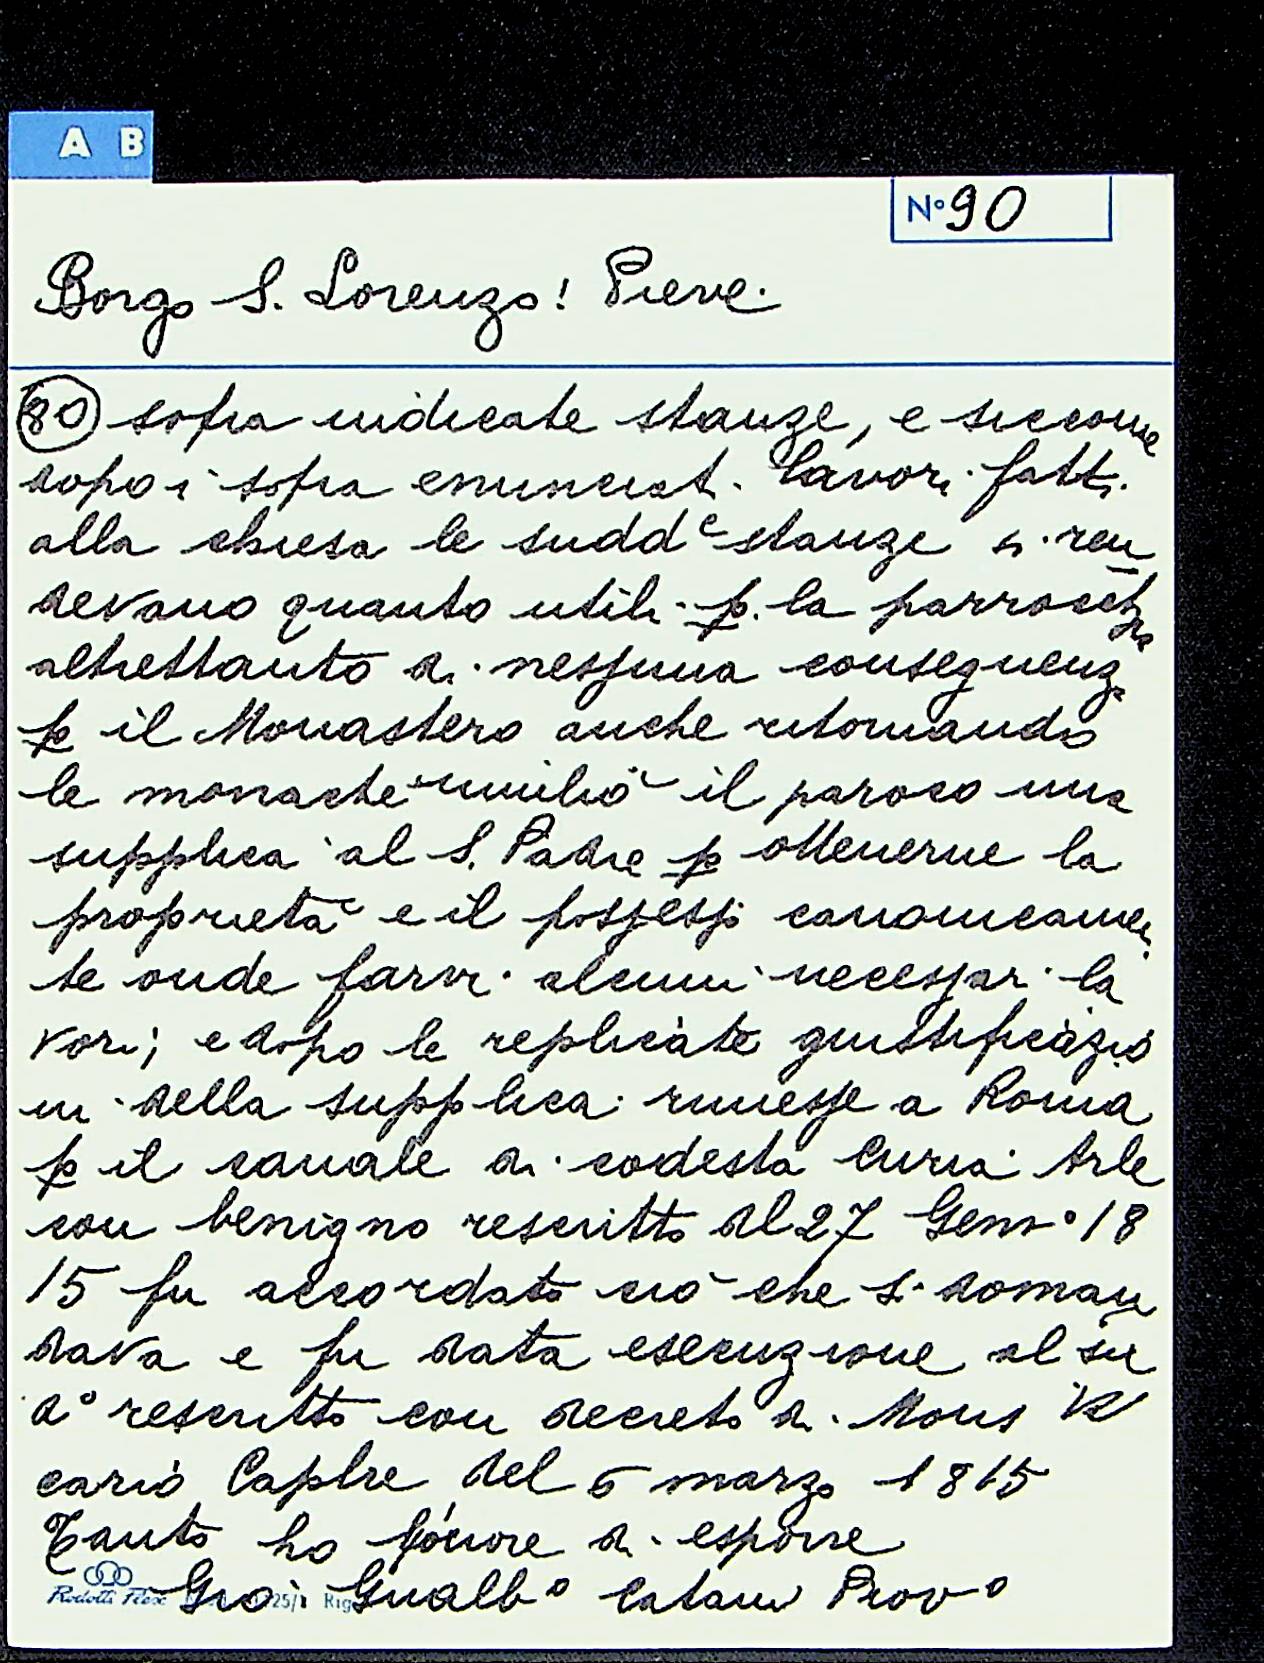 A B
N° 90
Borgo S. Lorenzo! Pieve.
(80) sopra indicate stanze, e siccome
dopo i sopra enunciati lavori fatti
alla chiesa le sudd.e stanze si ren
devano quanto utili p. la parrocchia
altrettanto di nessuna conseguenza
p il Monastero anche ritornando
le monache umiliò il paroco una
supplica al S. Padre p ottenerne la
proprietà e il possesso canonicamen
te onde farvi alcuni necessari la
vori; e dopo le replicate giustificazio
ni della supplica rimesse a Roma
p il canale di codesta Curia Arle
con benigno rescritto del 27 Genn° 18
15 fu accordato ciò che si doman
dava e fu data esecuzione al su
d° rescritto con decreto di Mons Vi
cario Caplre del 6 marzo 1815
Tanto ho l'onore di esporre
Gio Gualb° Catani Prov°
Rodotti Flex 25/1 Rig